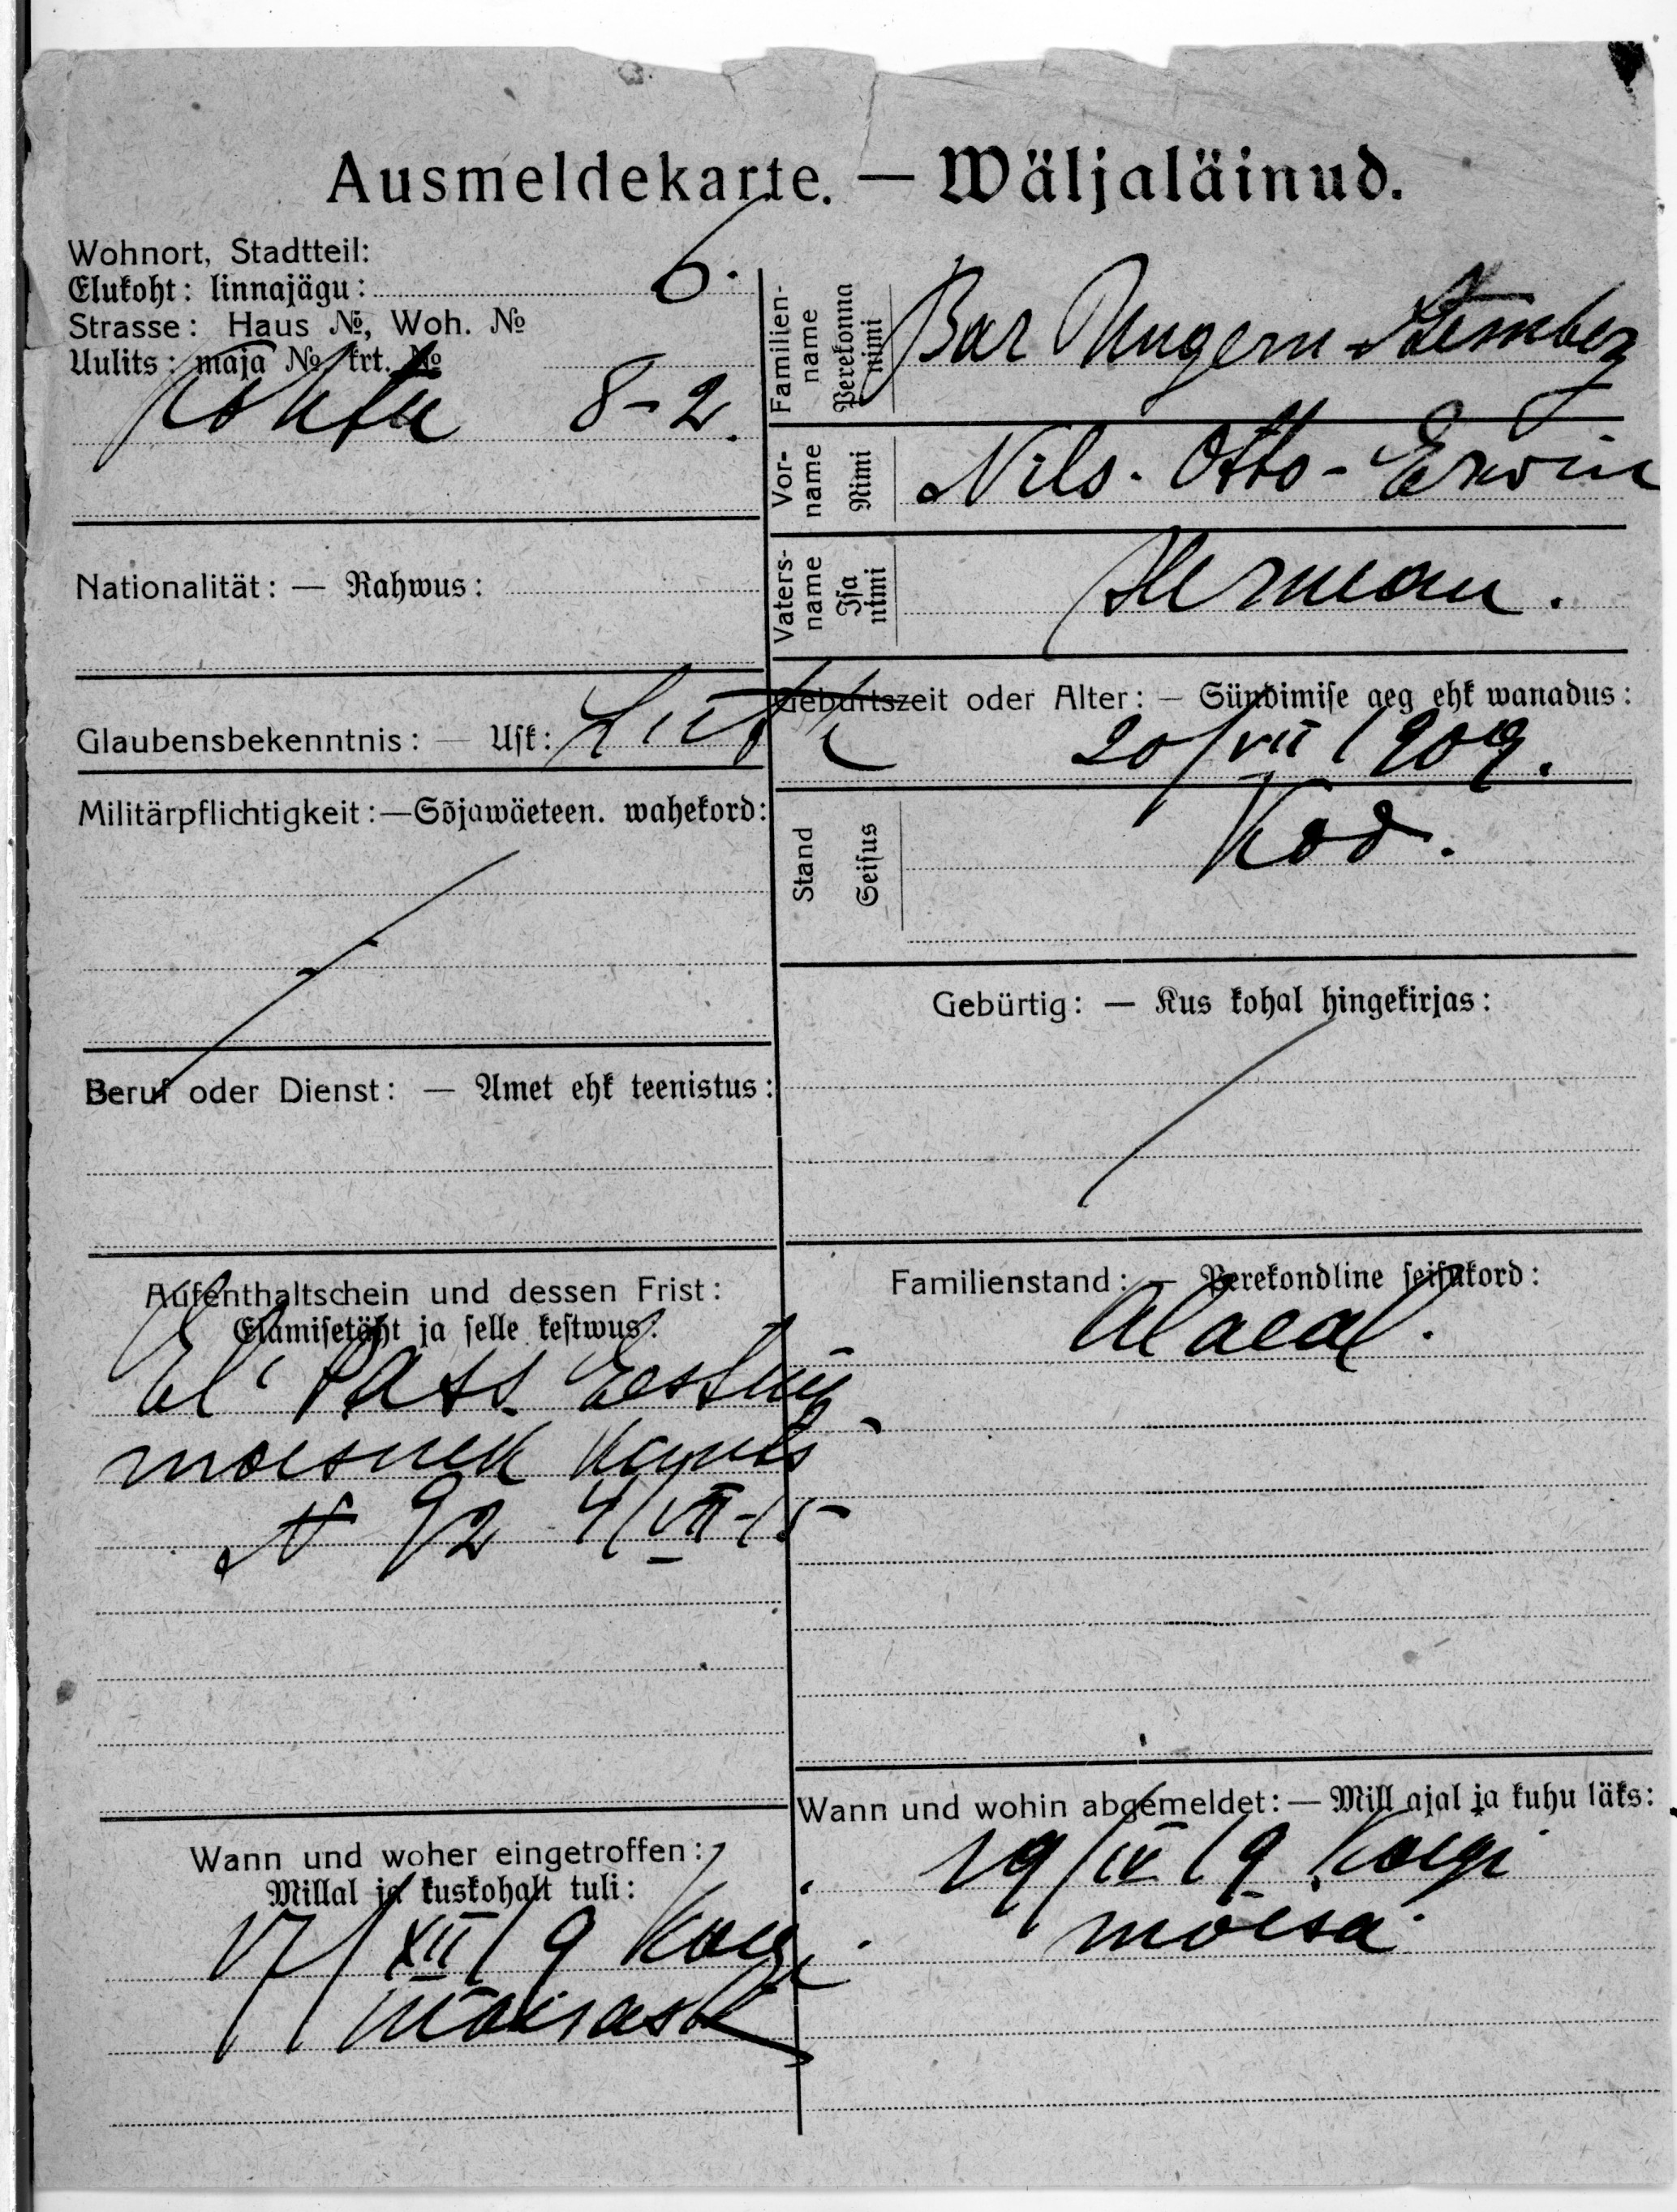 Ausmeldekarte. — Wäljaläinud.
Wohnort, Stadtteil:
Elukoht: linnajägu: 6.
Strasse: Haus №, Woh. №
Uulits: maja № krt. №
Kohtu 8-2.
Familien-name Perekonna nimi Bar Ungern-Sternberg
Vor-name Nimi Nils-Otto-Erwin
Vaters-name Isa nimi Herman.
Nationalität: — Rahwus:
Glaubensbekenntnis: — Usk: Luth
Geburtszeit oder Alter: — Sündimise aeg ehk wanadus:
20/VII 1909.
Militärpflichtigkeit: — Sõjawäeteen. wahekord:
Stand Seisus Kod.
Gebürtig: — Kus kohal hingekirjas:
Beruf oder Dienst: — Amet ehk teenistus:
Aufenthaltschein und dessen Frist:
Elamisetäht ja selle kestwus:
El. Pass
№ 92 4/VII-15
Familienstand: — Perekondline seisukord:
Alaeal.
Wann und woher eingetroffen:
Millal ja kuskohalt tuli:
17/XII 19
Wann und wohin abgemeldet: — Mill ajal ja kuhu läks:
19/IV 19 Kolgi
moisa